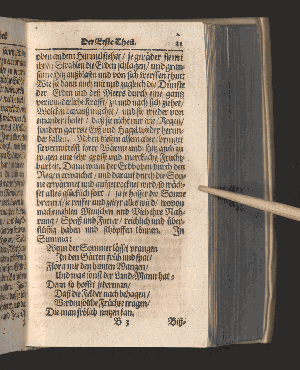 Der Erste Theil. 21
oben an dem Himmel stehet / je gerader sie mit
ihren Strahlen die Erden schlagen / und grau-
same Hitz außblasen und von sich werffen thut:
Wie sie dann auch mit und zugleich die Dünste
der Erden und des Meers durch eine gantz
verwunderliche Krafft / zu und nach sich ziehet /
Wolcken daraus machet / und sie wieder von
einander theilet / daß sie nicht nur wie Regen /
sondern gar wie Eiß und Hagel wieder herun-
der fallen. Neben diesem allem aber / bringet
sie vermittelst ihrer Wärme und Hitz auch zu
wegen eine sehr grosse und merckliche Frucht-
barkeit. Dann wann der Erdboden durch den
Regen erweichet / und darauf durch die Son-
ne erwärmet und außgetrocknet wird / so wäch-
set alles glücklich fort / ja je heisser die Sonne
brennet / je reiffer und zeiter alles wird / wovon
nachmahlen Menschen und Vieh ihre Nah-
rung / Speiß und Futter / reichlich und über-
flüssig haben und schöpffen können. In
Summa:
Wenn der Sommer lässet prangen
In den Gärten früh und spat /
Flora mit den bunten Wangen /
Und was sonst der Land-Mann hat;
Dann so hoffet jederman /
Daß die Felder nach behagen /
Werden solche Früchte tragen /
Die man frölich nutzen kan.
B 3 Biß-